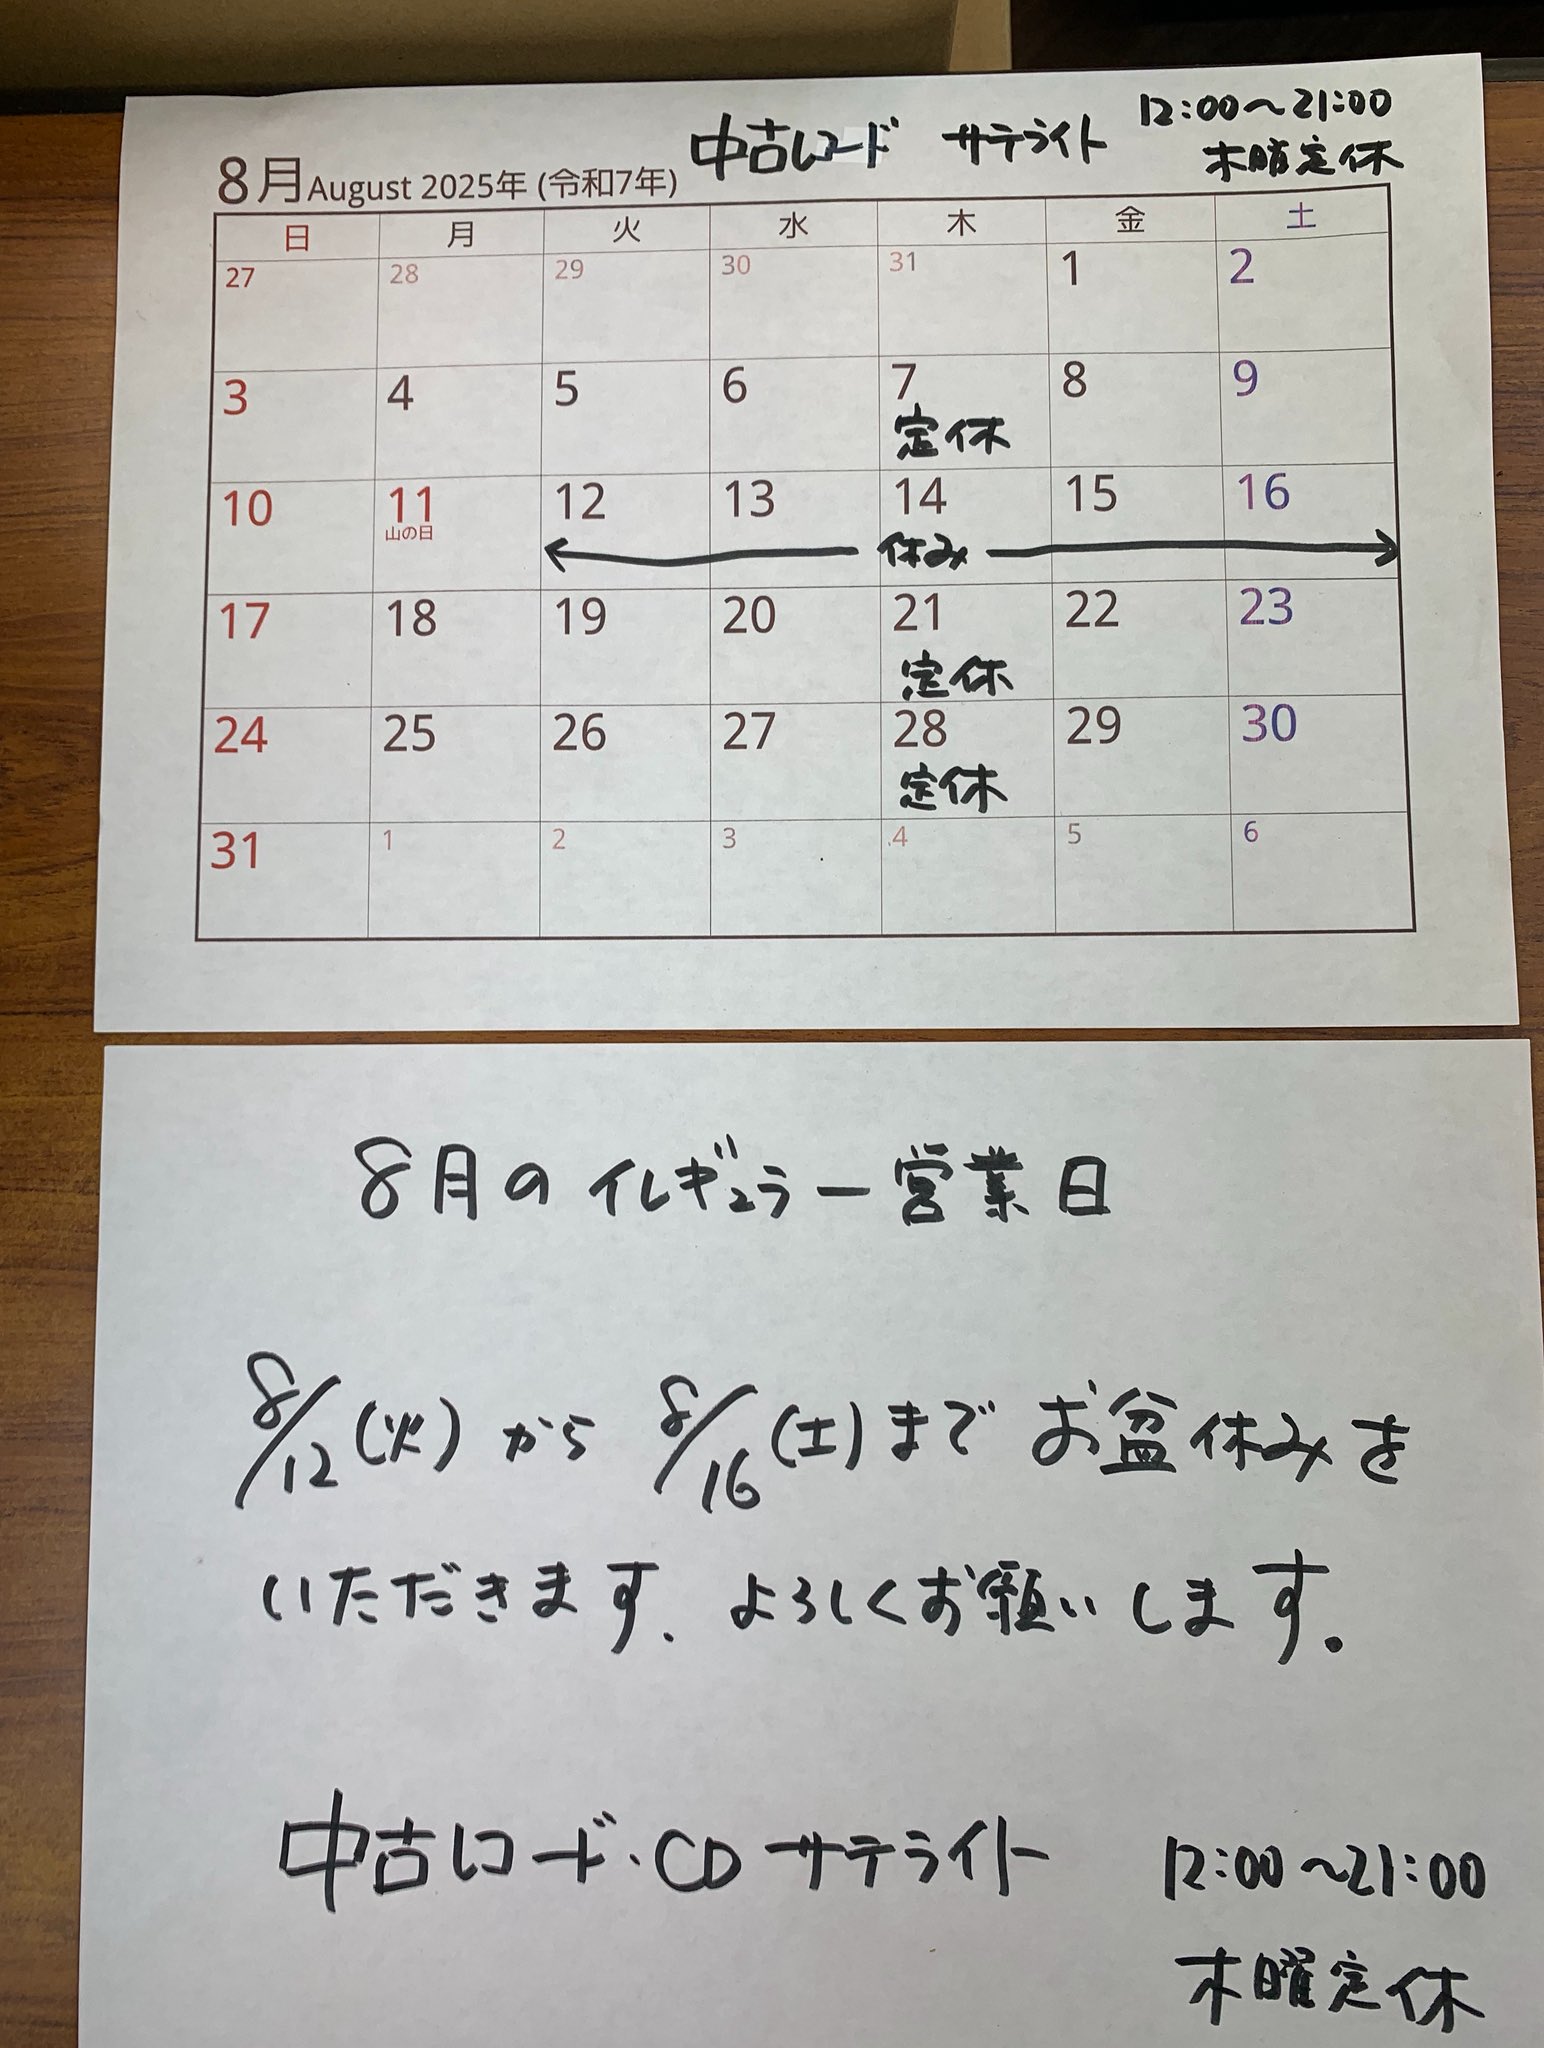 中古レコード サテライト 12:00～21:00
木曜定休
8月 August 2025年 (令和7年)
日 月 火 水 木 金 土
27 28 29 30 31 1 2
3 4 5 6 7 8 9
定休
10 11 12 13 14 15 16
山の日
休み
17 18 19 20 21 22 23
定休
24 25 26 27 28 29 30
定休
31 1 2 3 4 5 6
8月のイレギュラー営業日
8/12(火)から8/16(土)までお盆休みを
いただきます。よろしくお願いします。
中古レコード・CDサテライト 12:00～21:00
木曜定休